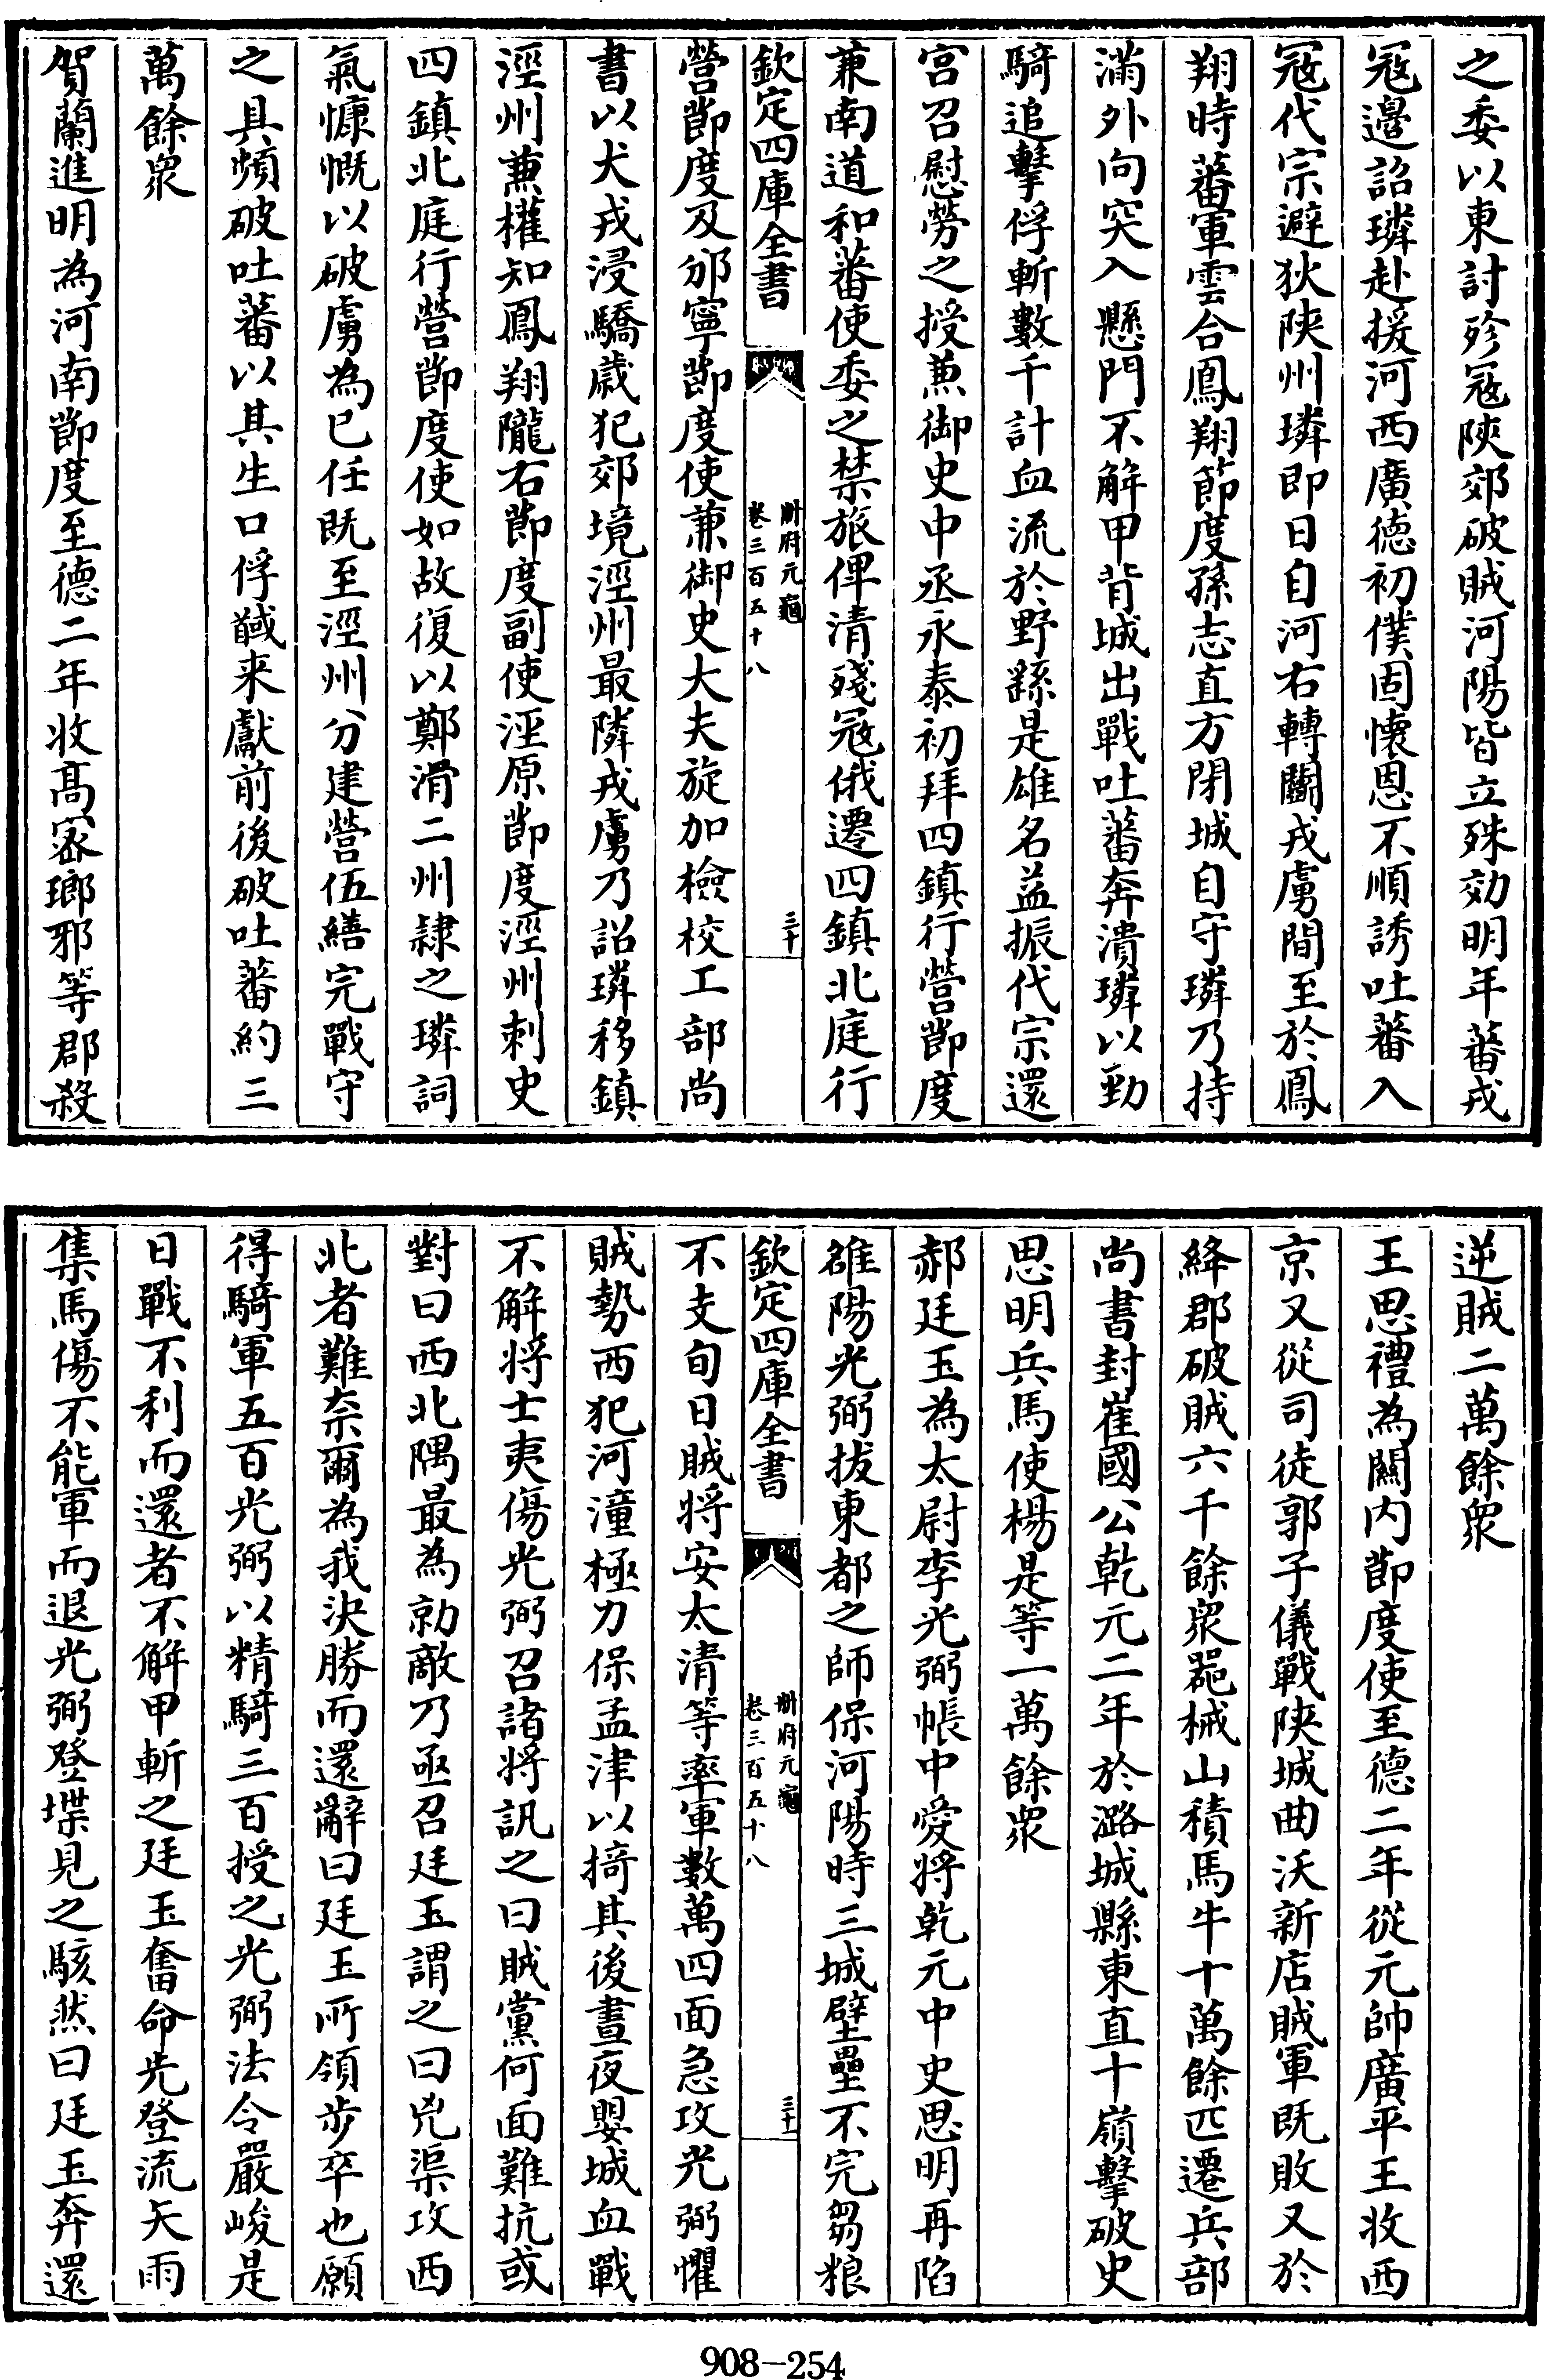 之委以東討殄冦陜郊破賊河陽皆立殊効明年蕃戎
冦邉詔璘赴援河西廣德初僕固懷恩不順誘吐蕃入
冦代宗避狄陜州璘即日自河右轉鬭戎虜間至於鳳
翔時蕃軍雲合鳳翔節度孫志直方閉城自守璘乃持
滿外向突入懸門不解甲背城出戰吐蕃奔潰璘以勁
騎追擊俘斬數千計血流於野繇是雄名益振代宗還
宫召慰勞之授兼御史中丞永泰初拜四鎮行營節度
兼南道和蕃使委之禁旅俾清殘冦俄遷四鎮北庭行
欽定四庫全書
冊府元龜
卷三百五十八
三十
營節度及邠寧節度使兼御史大夫旋加檢校工部尚
書以犬戎浸驕歳犯郊境涇州最隣戎虜乃詔璘移鎮
涇州兼權知鳳翔隴右節度副使涇原節度涇州刺史
四鎮北庭行營節度使如故復以鄭滑二州隷之璘詞
氣慷慨以破虜為已任既至涇州分建營伍繕完戰守
之具頻破吐蕃以其生口俘馘来獻前後破吐蕃約三
萬餘衆
賀蘭進明為河南節度至德二年收髙宻瑯邪等郡殺
逆賊二萬餘衆
王思禮為關内節度使至德二年從元帥廣平王收西
京又從司徒郭子儀戰陜城曲沃新店賊軍既敗又於
絳郡破賊六千餘衆噐械山積馬牛十萬餘匹遷兵部
尚書封崔國公乾元二年於潞城縣東直十嶺擊破史
思明兵馬使楊是等一萬餘衆
郝廷玉為太尉李光弼帳中愛將乾元中史思明再陷
雒陽光弼拔東都之師保河陽時三城壁壘不完芻粮
欽定四庫全書
冊府元龜
卷三百五十八
三十一
不支旬日賊將安太清等率軍數萬四面急攻光弼懼
賊勢西犯河潼極力保孟津以掎其後晝夜嬰城血戰
不解將士夷傷光弼召諸將訊之曰賊黨何面難抗或
對曰西北隅最為勍敵乃亟召廷玉謂之曰兇渠攻西
北者難奈爾為我決勝而還辭曰廷玉所領步卒也願
得騎軍五百光弼以精騎三百授之光弼法令嚴峻是
日戰不利而還者不解甲斬之廷玉奮命先登流矢雨
集馬傷不能軍而退光弼登堞見之駭然曰廷玉奔還
908—254